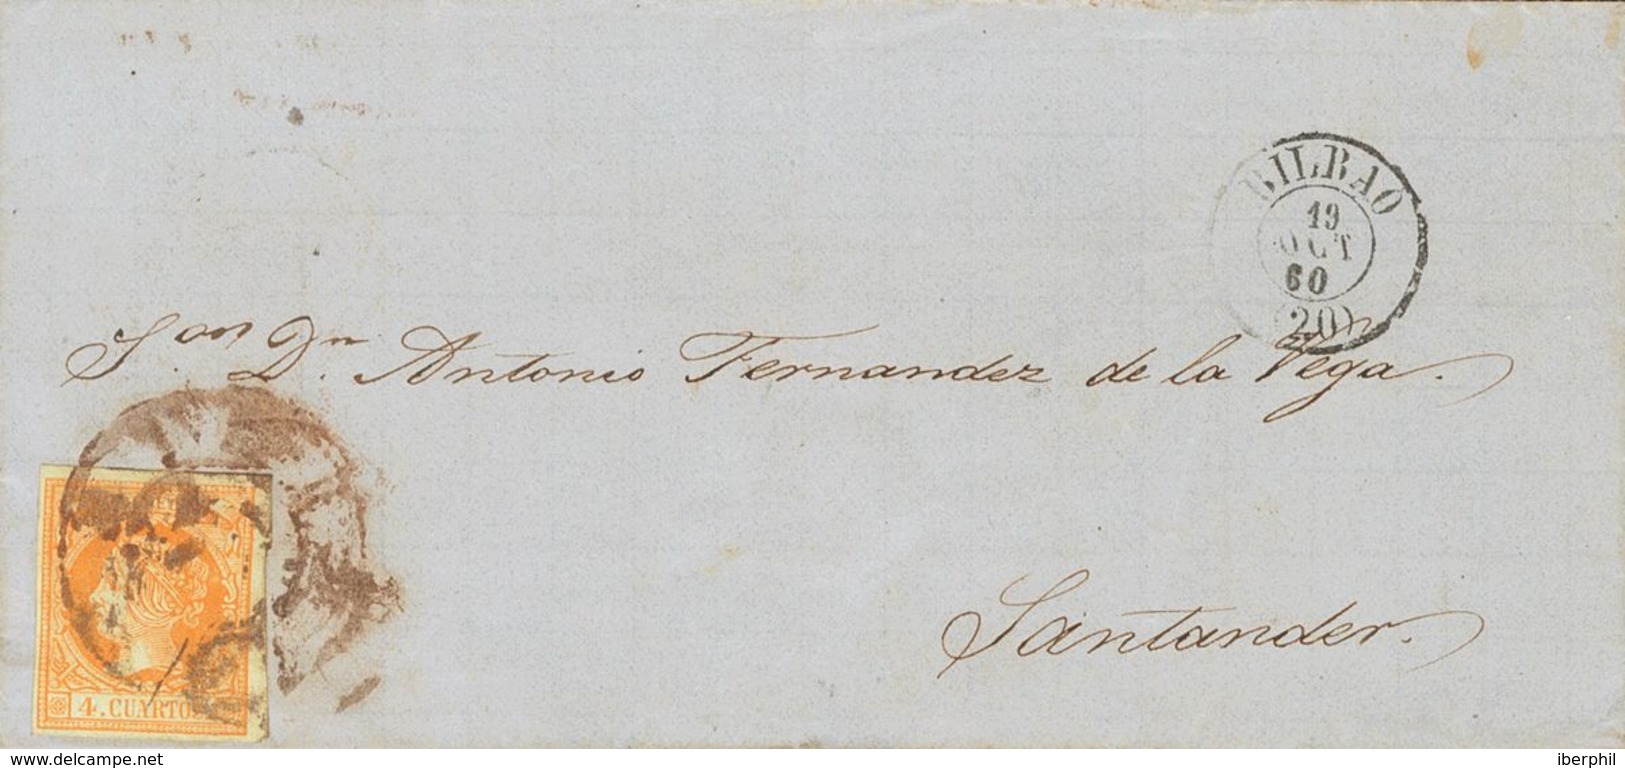 BILBAO
19
OCT
60
(20)
S.on D.n Antonio Fernandez de la Vega.
Santander.
4. CUARTOS
www.delcampe.net
iberphil